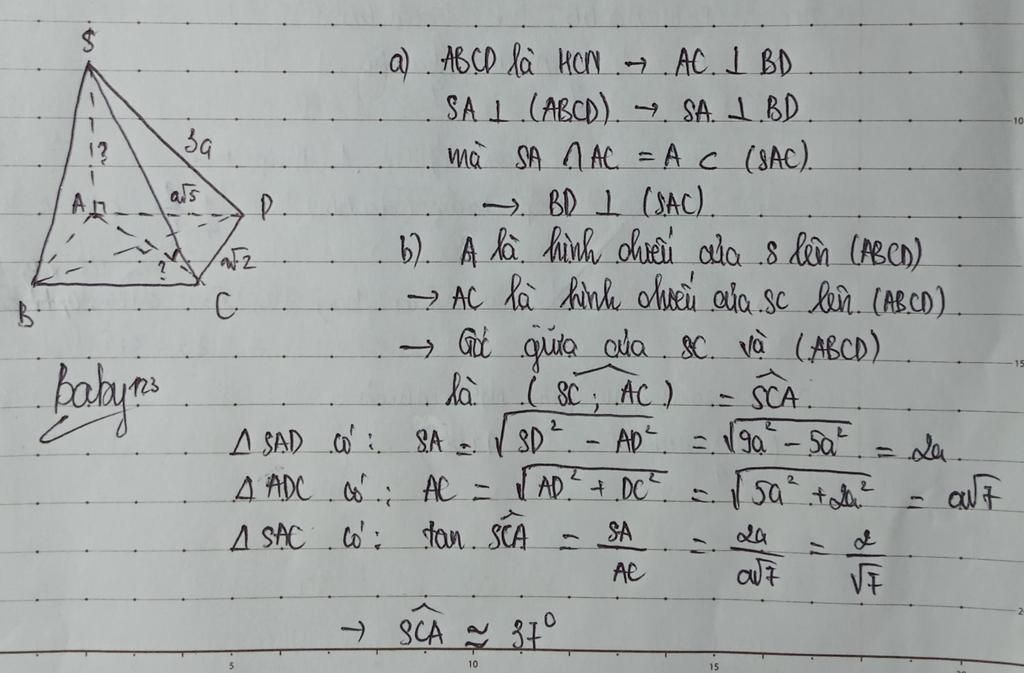 S
3a
?
a√5
A
D
?
a√2
B
C
a) ABCD là HCN → AC ⊥ BD
SA ⊥ (ABCD) → SA ⊥ BD
mà SA ∩ AC = A ⊂ (SAC).
→ BD ⊥ (SAC)
b) A là hình chiếu của S lên (ABCD)
→ AC là hình chiếu của SC lên (ABCD)
→ Góc giữa của SC và (ABCD)
là (SC; AC) = SCA
Baby123
Δ SAD có: SA = √(SD² - AD²) = √(9a² - 5a²) = 2a
Δ ADC có: AC = √(AD² + DC²) = √(5a² + 2a²) = a√7
Δ SAC có: tan SCA = SA/AC = 2a/a√7 = 2/√7
→ SCA ≈ 37°
10
15
2
5
10
15